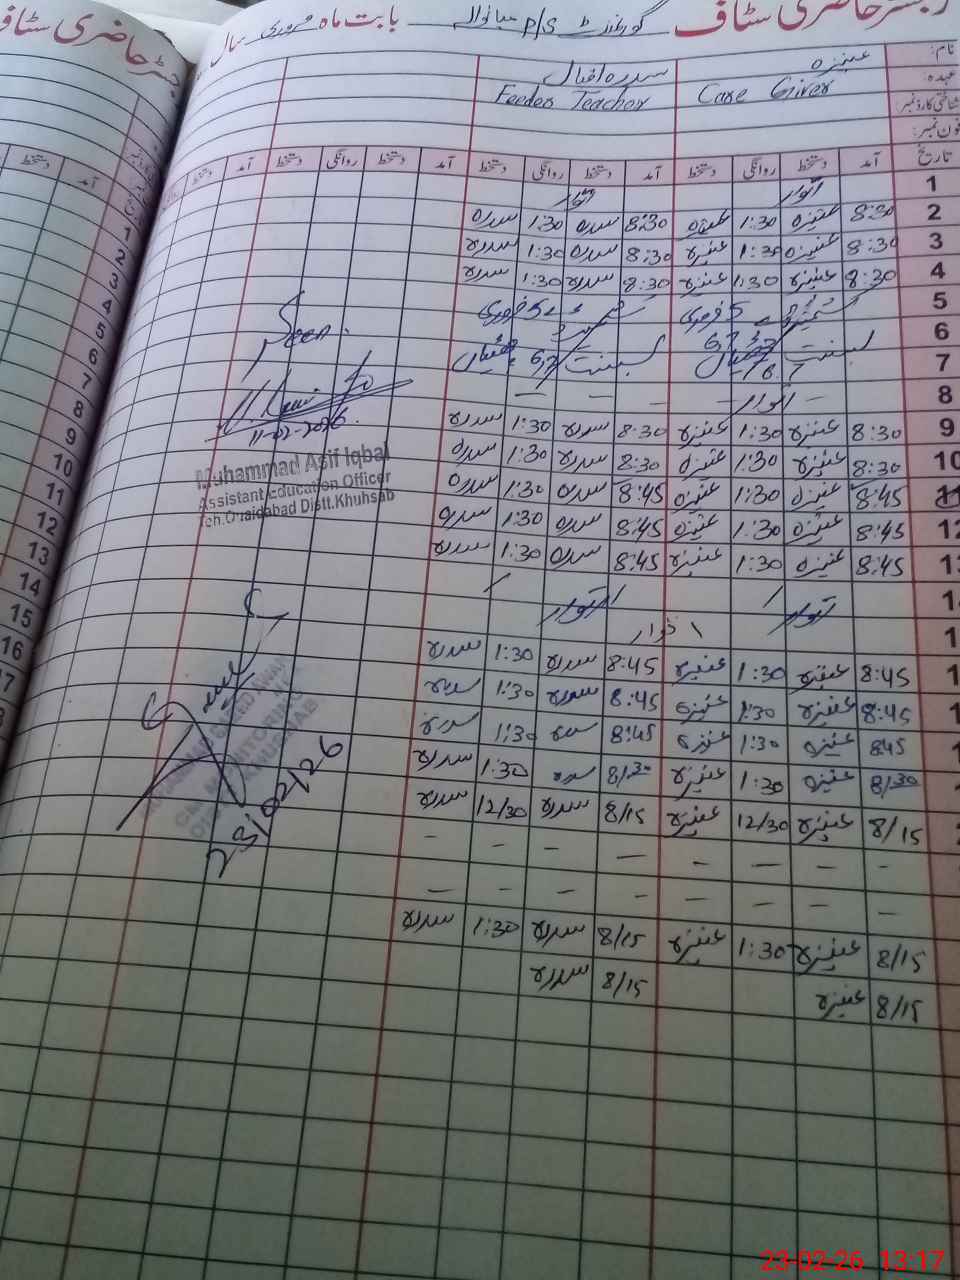 رجسٹر حاضری سٹاف گورنمنٹ P/S میانوالہ بابت ماہ فروری سال
نام: عنیزہ سدرہ اقبال
عہدہ: Care Giver Feeder Teacher
شناختی کارڈ نمبر:
فون نمبر:
تاریخ آمد دستخط روانگی دستخط آمد دستخط روانگی دستخط آمد دستخط روانگی دستخط آمد دستخط
1 اتوار اتوار
2 8:30 عنیزہ 1:30 عنیزہ 8:30 سدرہ 1:30 سدرہ
3 8:30 عنیزہ 1:30 عنیزہ 8:30 سدرہ 1:30 سدرہ
4 8:30 عنیزہ 1:30 عنیزہ 8:30 سدرہ 1:30 سدرہ
5 5 فروری 5 فروری
6 بسنت 6,7 بسنت 6,7
7 چھٹیاں چھٹیاں
8 – اتوار – – – –
9 8:30 عنیزہ 1:30 عنیزہ 8:30 سدرہ 1:30 سدرہ
10 8:30 عنیزہ 1:30 عنیزہ 8:30 سدرہ 1:30 سدرہ
11 8:45 عنیزہ 1:30 عنیزہ 8:45 سدرہ 1:30 سدرہ
12 8:45 عنیزہ 1:30 عنیزہ 8:45 سدرہ 1:30 سدرہ
13 8:45 عنیزہ 1:30 عنیزہ 8:45 سدرہ 1:30 سدرہ
1 اتوار اتوار
1
1 8:45 عنیزہ 1:30 عنیزہ 8:45 سدرہ 1:30 سدرہ
1 8:45 عنیزہ 1:30 عنیزہ 8:45 سدرہ 1:30 سدرہ
1 8:45 عنیزہ 1:30 عنیزہ 8:45 سدرہ 1:30 سدرہ
8/30 عنیزہ 1:30 عنیزہ 8/30 سدرہ 1:30 سدرہ
8/15 عنیزہ 12/30 عنیزہ 8/15 سدرہ 12/30 سدرہ
– – – – – – – –
– – – – – – – –
8/15 عنیزہ 1:30 عنیزہ 8/15 سدرہ 1:30 سدرہ
8/15 عنیزہ 8/15 سدرہ
Seen.
11-02-2026.
Muhammad Asif Iqbal
Assistant Education Officer
Teh.Quaidabad Distt.Khuhsab
23/02/26
رجسٹر حاضری سٹاف
آمد دستخط
1
2
3
4
5
6
7
8
9
10
11
12
13
14
15
16
17
23-02-26 13:17